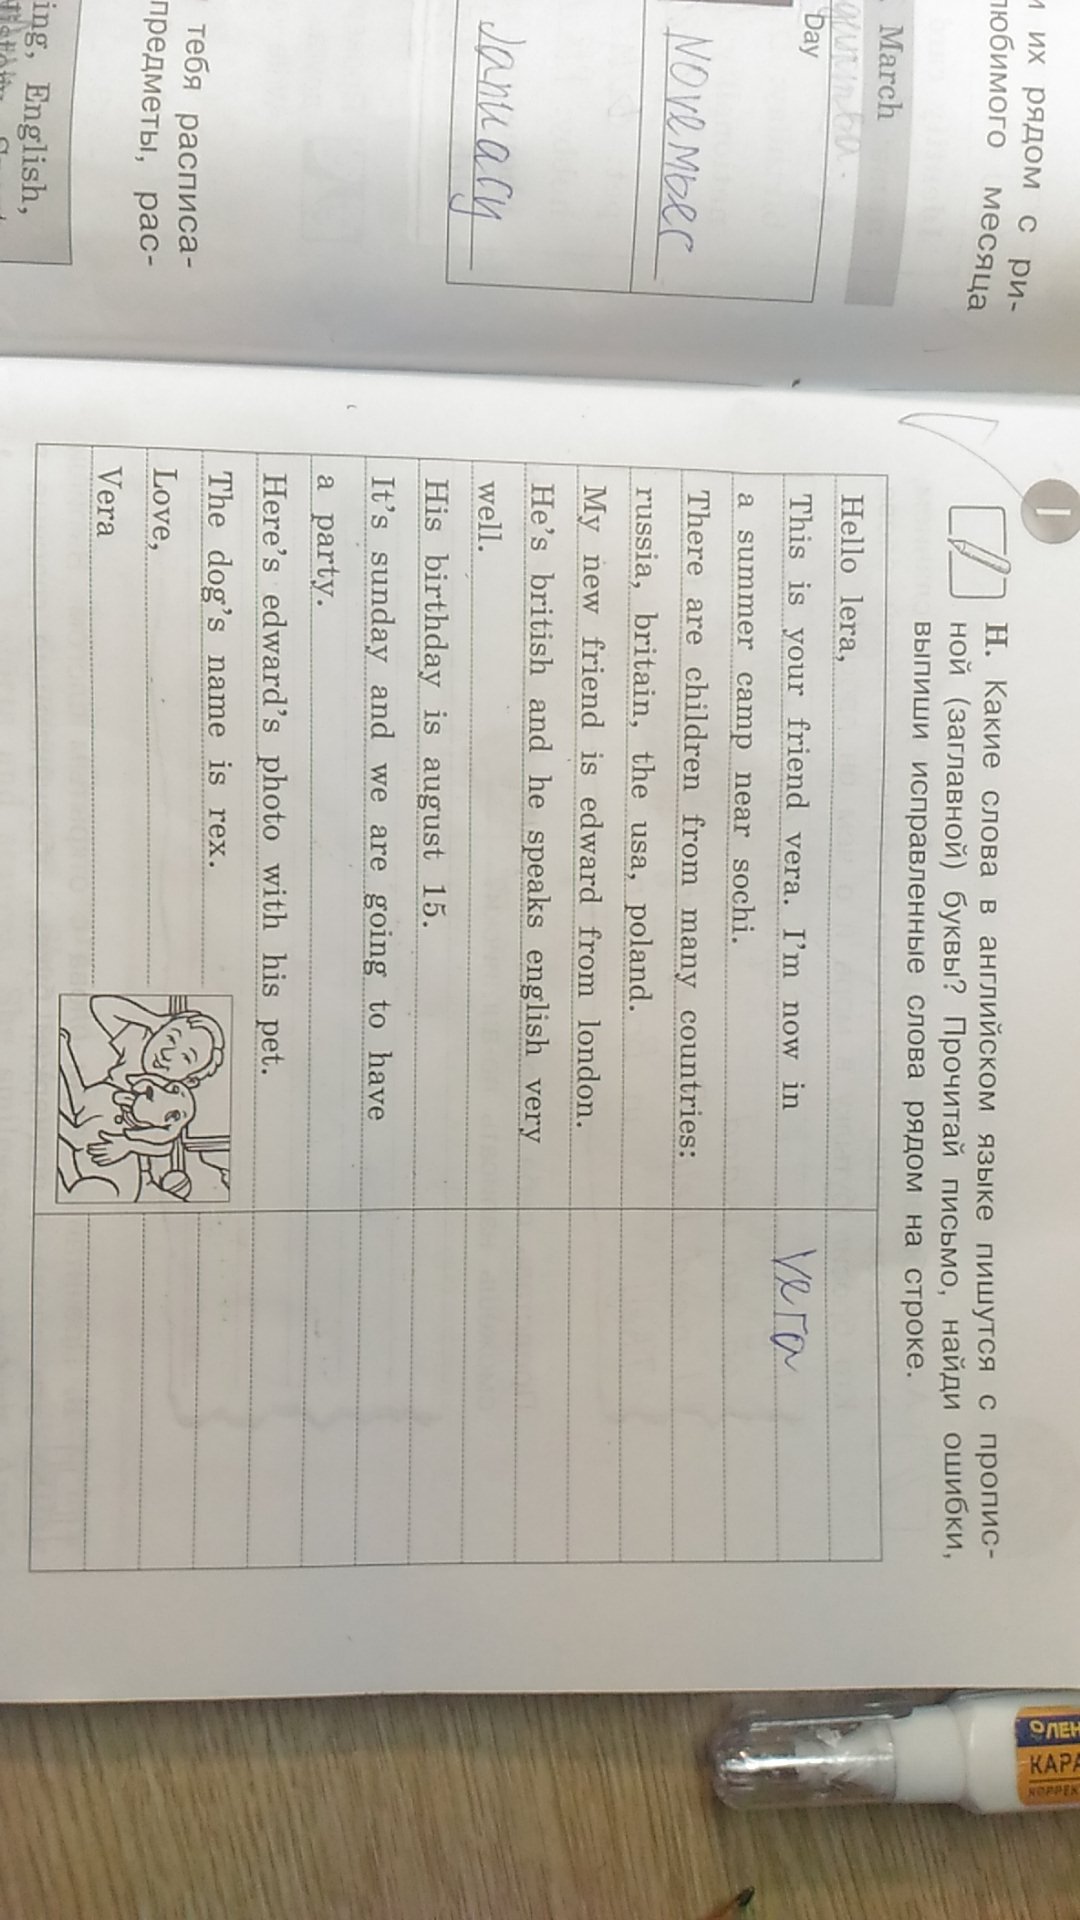 и их рядом с ри-
любимого месяца
March
Day
November
January
тебя расписа-
предметы, рас-
ing, English,
1
H. Какие слова в английском языке пишутся с пропис-
ной (заглавной) буквы? Прочитай письмо, найди ошибки,
выпиши исправленные слова рядом на строке.
Hello lera,
This is your friend vera. I'm now in
Vera
a summer camp near sochi.
There are children from many countries:
russia, britain, the usa, poland.
My new friend is edward from london.
He's british and he speaks english very
well.
His birthday is august 15.
It's sunday and we are going to have
a party.
Here's edward's photo with his pet.
The dog's name is rex.
Love,
Vera
КАРА